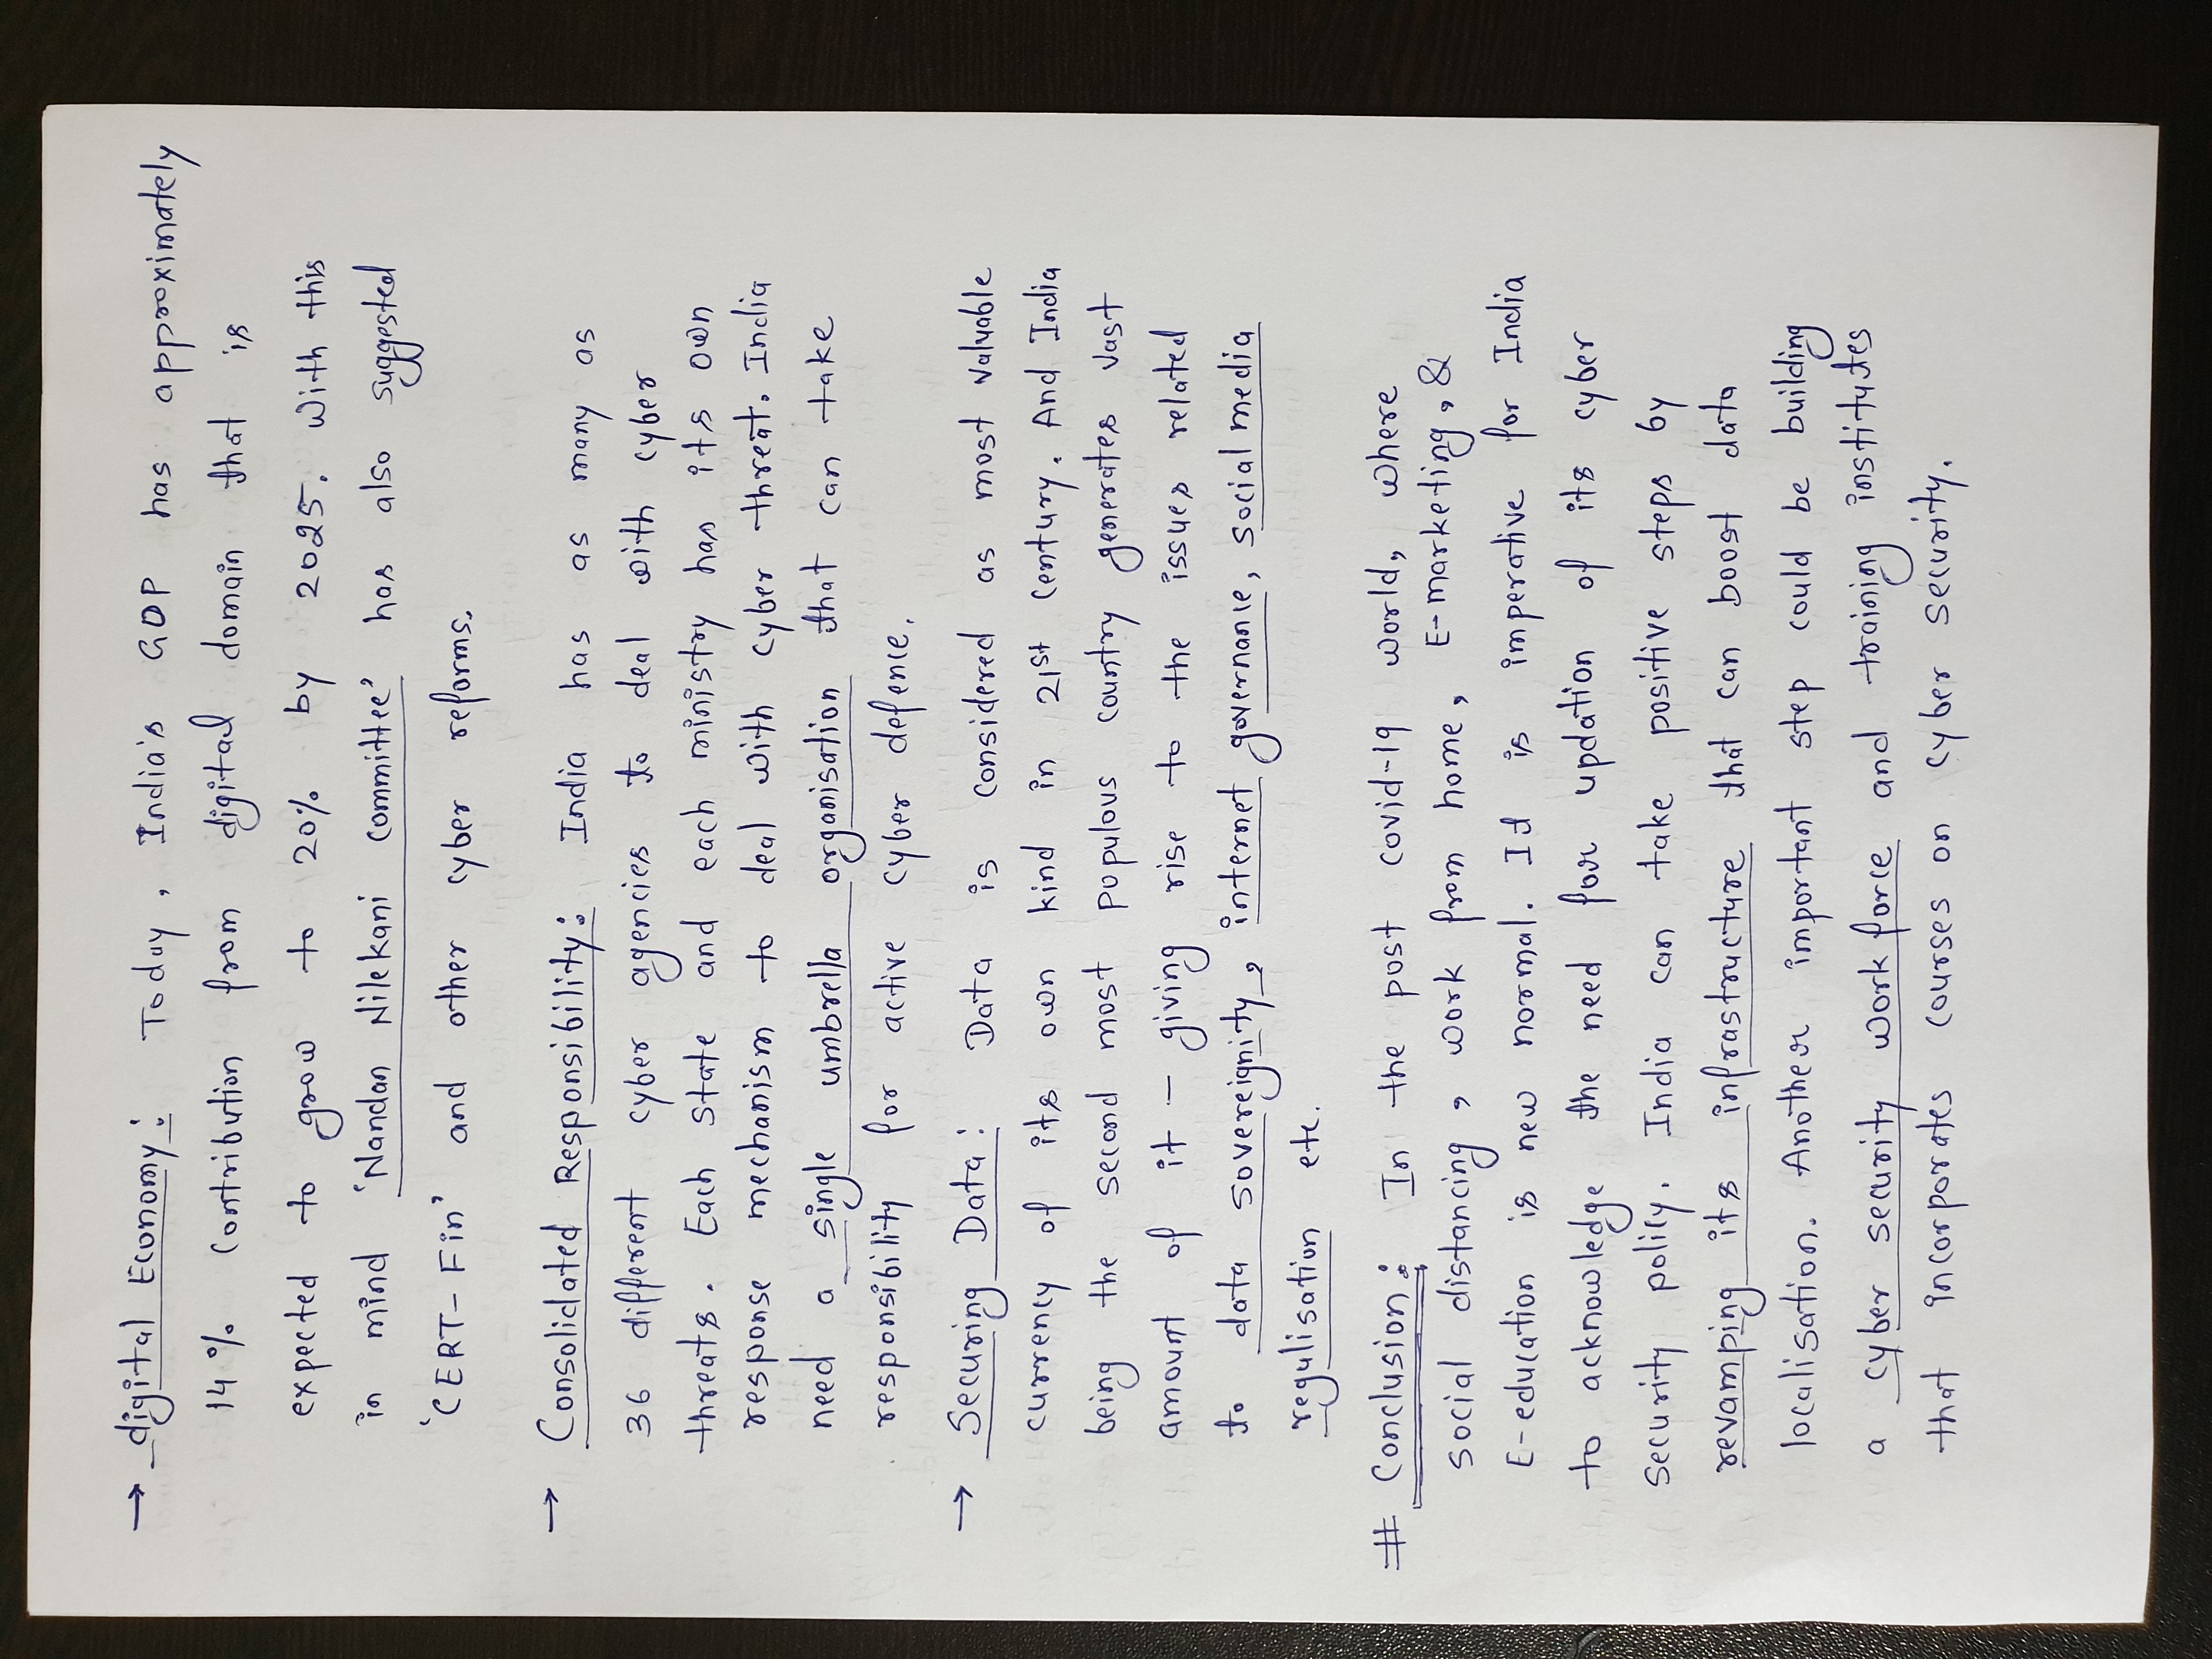 → digital Economy: Today, India's GDP has approximately
14% contribution from digital domain that is
expected to grow to 20% by 2025. With this
in mind 'Nandan Nilekani committee' has also suggested
'CERT-Fin' and other cyber reforms.
→ Consolidated Responsibility: India has as many as
36 different cyber agencies to deal with cyber
threats. Each state and each ministry has its own
response mechanism to deal with cyber threat. India
need a single umbrella organisation that can take
responsibility for active cyber defence.
→ Securing Data: Data is considered as most valuable
currency of its own kind in 21st century. And India
being the second most populous country generates vast
amount of it – giving rise to the issues related
to data sovereignity, internet governance, social media
regulisation etc.
# Conclusion: In the post covid-19 world, where
social distancing, work from home, E-marketing, &
E-education is new normal. It is imperative for India
to acknowledge the need for updation of its cyber
security policy. India can take positive steps by
revamping its infrastructure that can boost data
localisation. Another important step could be building
a cyber security work force and training institutes
that incorporates courses on cyber security.